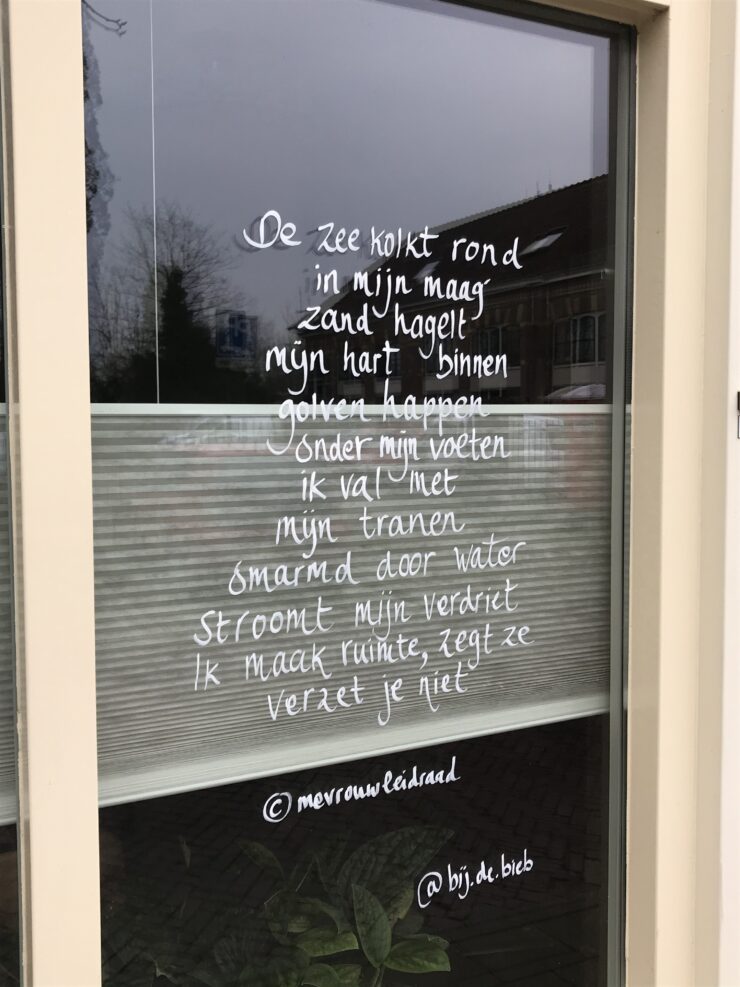 De zee kolkt rond
in mijn maag
zand hagelt
mijn hart binnen
golven happen
onder mijn voeten
ik val met
mijn tranen
omarmd door water
stroomt mijn verdriet
Ik maak ruimte, zegt ze
verzet je niet
© mevrouwleidraad
@bij.de.bieb